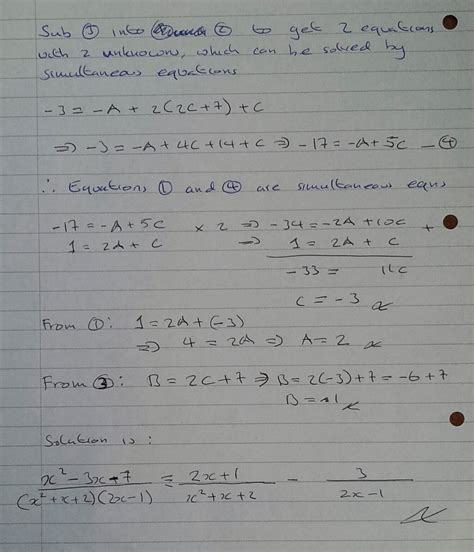 Sub ③ into ② to get 2 equations
with 2 unknowns, which can be solved by
simultaneous equations
-3 = -A + 2(2C+7) + C
⇒ -3 = -A + 4C + 14 + C ⇒ -17 = -A + 5C — ④
∴ Equations ① and ④ are simultaneous eqns
-17 = -A + 5C × 2 ⇒ -34 = -2A + 10C +
1 = 2A + C ⇒ 1 = 2A + C
-33 = 11C
C = -3
From ①: 1 = 2A + (-3)
⇒ 4 = 2A ⇒ A = 2
From ③: B = 2C + 7 ⇒ B = 2(-3) + 7 = -6 + 7
B = 1
Solution is:
x² - 3x - 7 / (x² + x + 2)(2x - 1) ≡ 2x + 1 / x² + x + 2 - 3 / 2x - 1